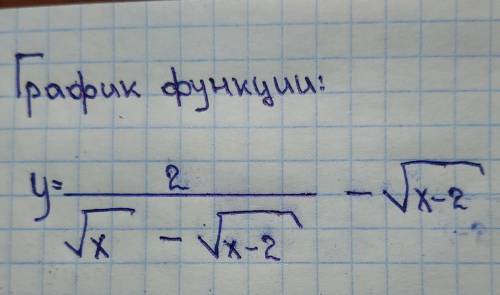 График функции:
y = 2 / (√x − √(x−2)) − √(x−2)